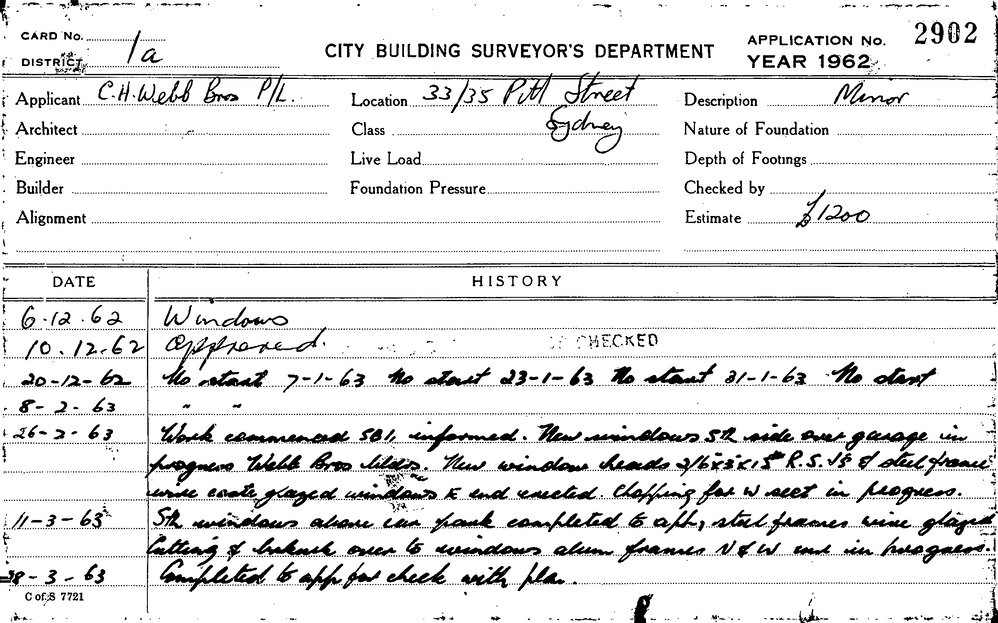 CARD No.
DISTRICT 1a
CITY BUILDING SURVEYOR'S DEPARTMENT
APPLICATION No. 2902
YEAR 1962
Applicant C.H. Webb Bros P/L. Location 33/35 Pitt Street Description Minor
Architect Class Sydney Nature of Foundation
Engineer Live Load Depth of Footings
Builder Foundation Pressure Checked by
Alignment Estimate £1200
DATE HISTORY
6.12.62 Windows
10.12.62 Approved. CHECKED
20-12-62 No start 7-1-63 No start 23-1-63 No start 31-1-63 No start
8-2-63 " "
26-2-63 Work commenced informed. New windows Sth side over garage in
progress Webb Bros blds. New window heads 2/6"x3"x15# R.S.Js & steel frame
wire glazed windows E end erected. Chopping for W sect in progress.
11-3-63 Sth windows above car park completed to app, steel frames wire glazed
Cutting of brkwk over to windows alum frames N & W end in progress.
28-3-63 Completed to app for check with plan.
C of S 7721